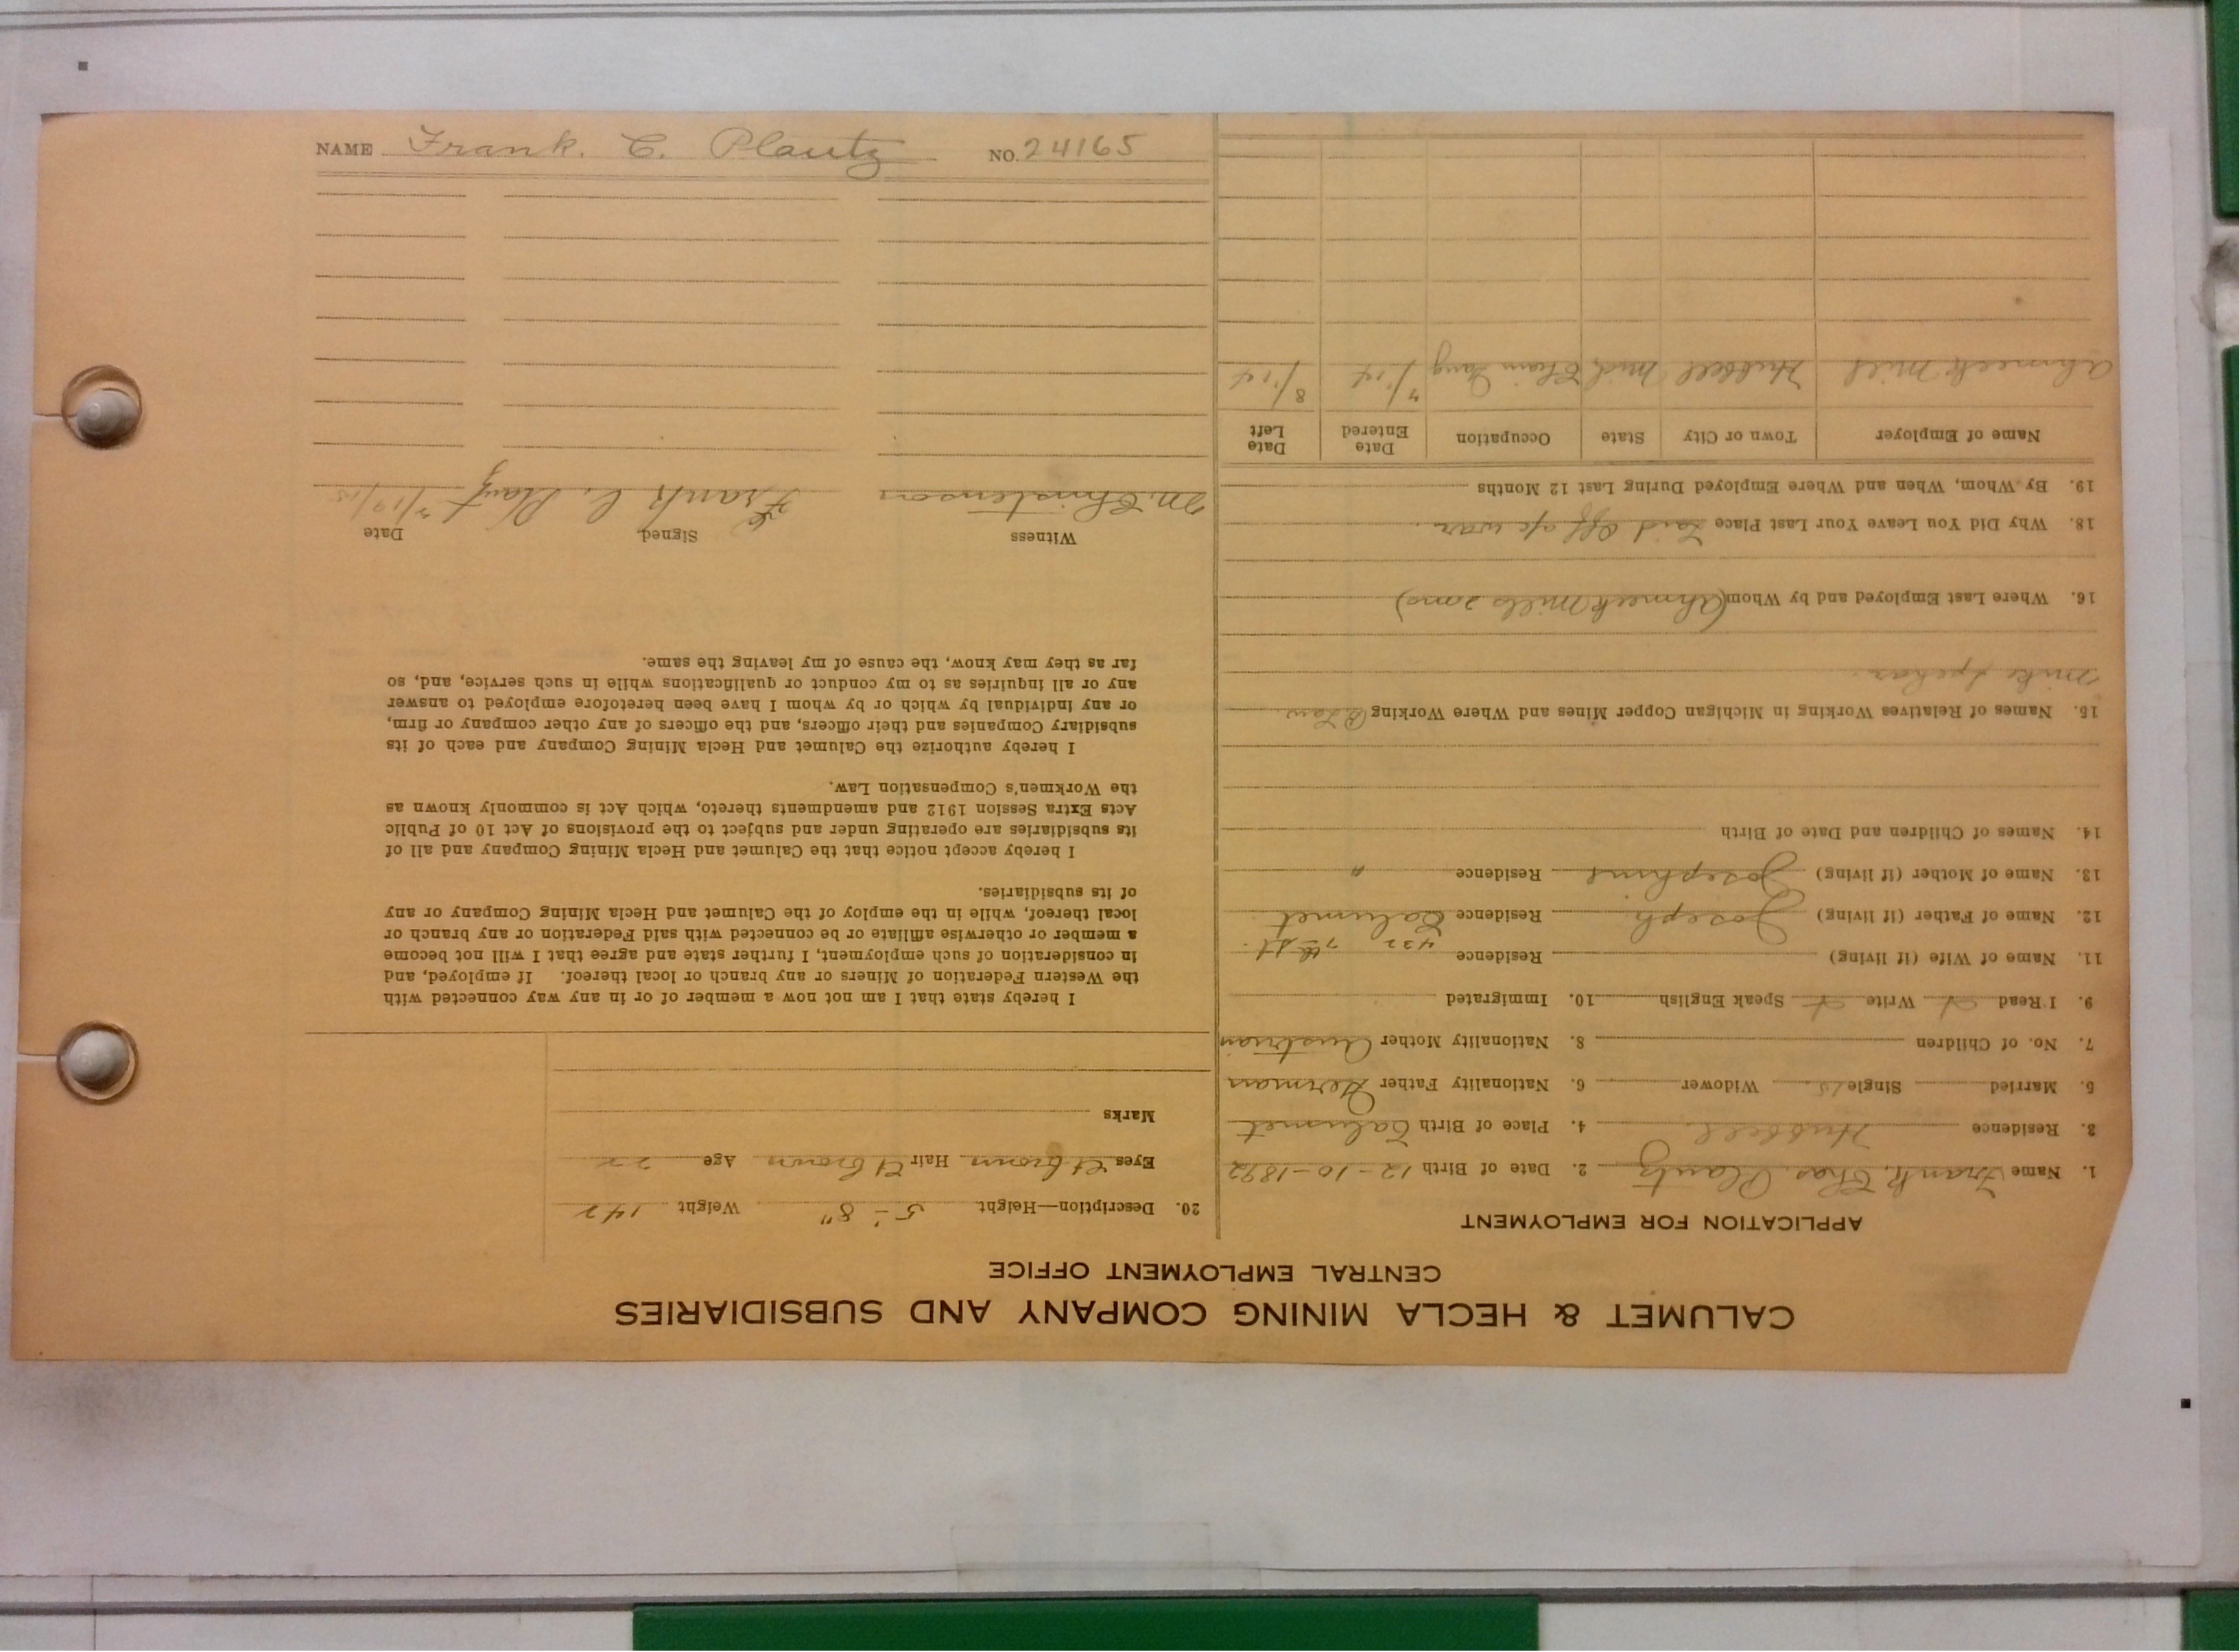 CALUMET & HECLA MINING COMPANY AND SUBSIDIARIES
CENTRAL EMPLOYMENT OFFICE
APPLICATION FOR EMPLOYMENT
1. Name Frank Chas. Plautz 2. Date of Birth 12-10-1892
3. Residence Hubbell 4. Place of Birth Calumet
5. Married Single Widower 6. Nationality Father German
7. No. of Children 8. Nationality Mother Austrian
9. I Read Write Speak English 10. Immigrated
11. Name of Wife (if living) Residence 432 7th St.
12. Name of Father (if living) Joseph Residence Calumet
13. Name of Mother (if living) Josephine Residence "
14. Names of Children and Date of Birth
15. Names of Relatives Working in Michigan Copper Mines and Where Working B. Law
Mike Spehar
16. Where Last Employed and by Whom (Ahmeek Mills
18. Why Did You Leave Your Last Place Laid off a/c war.
19. By Whom, When and Where Employed During Last 12 Months
Name of Employer Town or City State Occupation Date Entered Date Left
Ahmeek Mill Hubbell Mich Chain Gang 7/14 8/14
20. Description—Height 5'-8" Weight 142
Eyes Lt Brown Hair Lt Brown Age 22
Marks
I hereby state that I am not now a member of or in any way connected with
the Western Federation of Miners or any branch or local thereof. If employed, and
in consideration of such employment, I further state and agree that I will not become
a member or otherwise affiliate or be connected with said Federation or any branch or
local thereof, while in the employ of the Calumet and Hecla Mining Company or any
of its subsidiaries.
I hereby accept notice that the Calumet and Hecla Mining Company and all of
its subsidiaries are operating under and subject to the provisions of Act 10 of Public
Acts Extra Session 1912 and amendments thereto, which Act is commonly known as
the Workmen's Compensation Law.
I hereby authorize the Calumet and Hecla Mining Company and each of its
subsidiary Companies and their officers, and the officers of any other company or firm,
or any individual by which or by whom I have been heretofore employed to answer
any or all inquiries as to my conduct or qualifications while in such service, and, so
far as they may know, the cause of my leaving the same.
Witness Signed Date
M. Christenson Frank C. Plautz
NAME Frank. C. Plautz NO. 24165